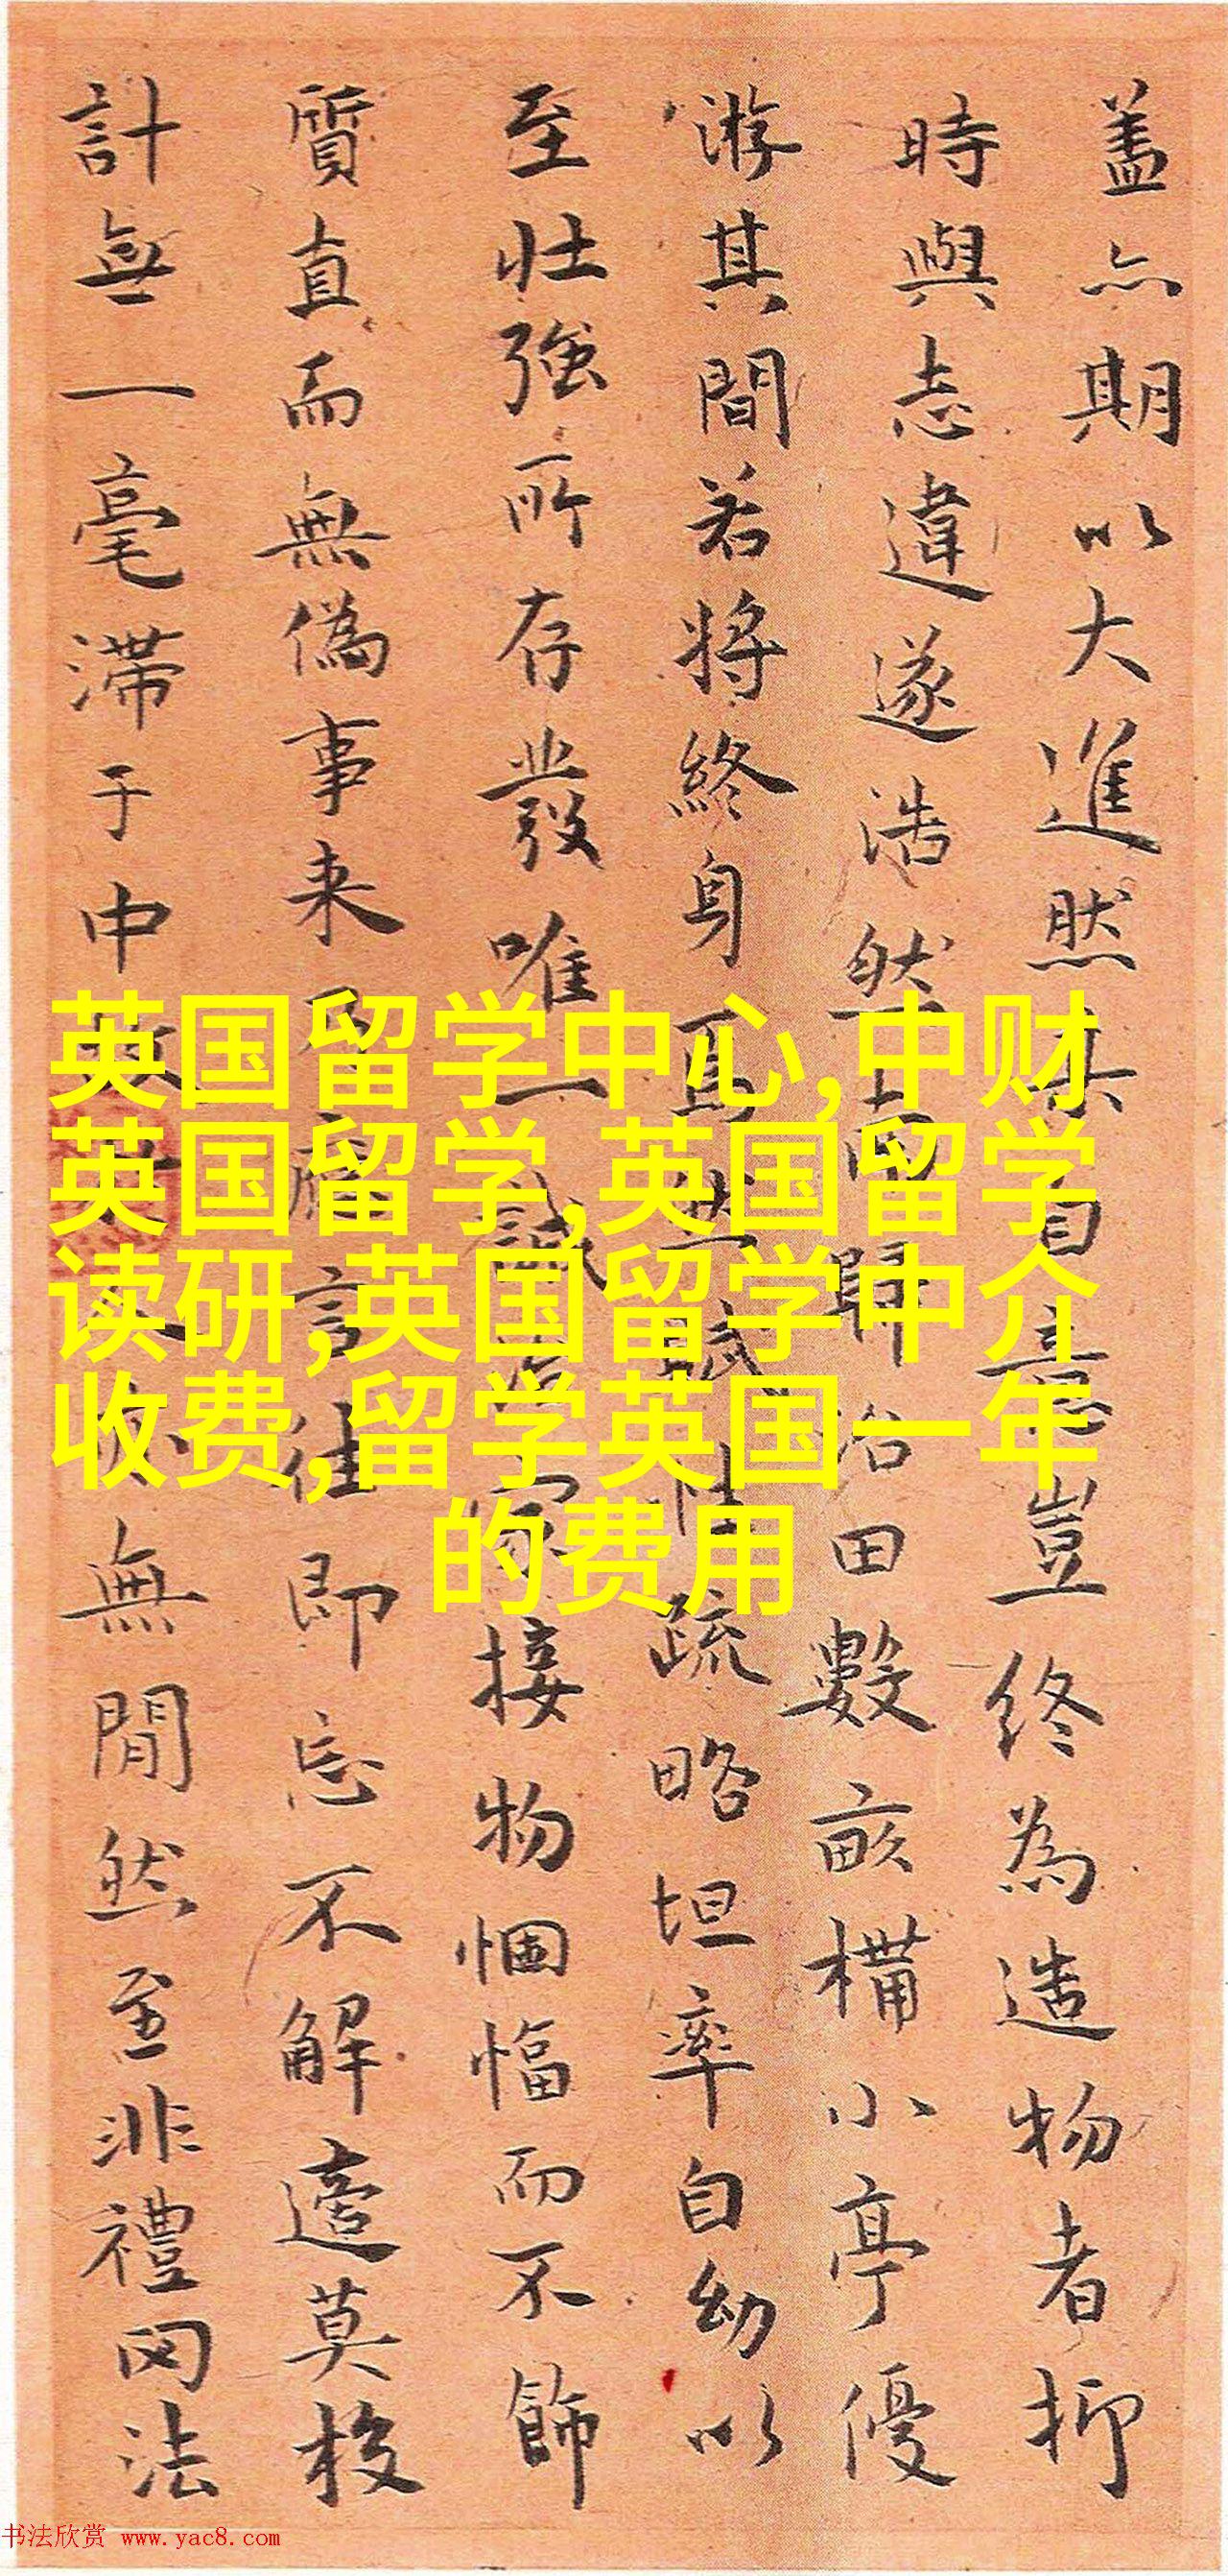 蓋亦期以大進然其自意豈終為造物者抑
時與志違遂浩然而歸治田數畝構小亭優
游其間若將終身焉然賦性疏略坦率自幼以
至壯強所存發唯一誠居家接物悃愊而不飾
質直而無偽事来即應言往即忘不解邅莫校
計無一毫滞于中
無閒然至非禮网法
英国留学中心,中财
英国留学,英国留学
读研,英国留学中介
收费,留学英国一年
的费用
书法欣赏 www.yac8.com